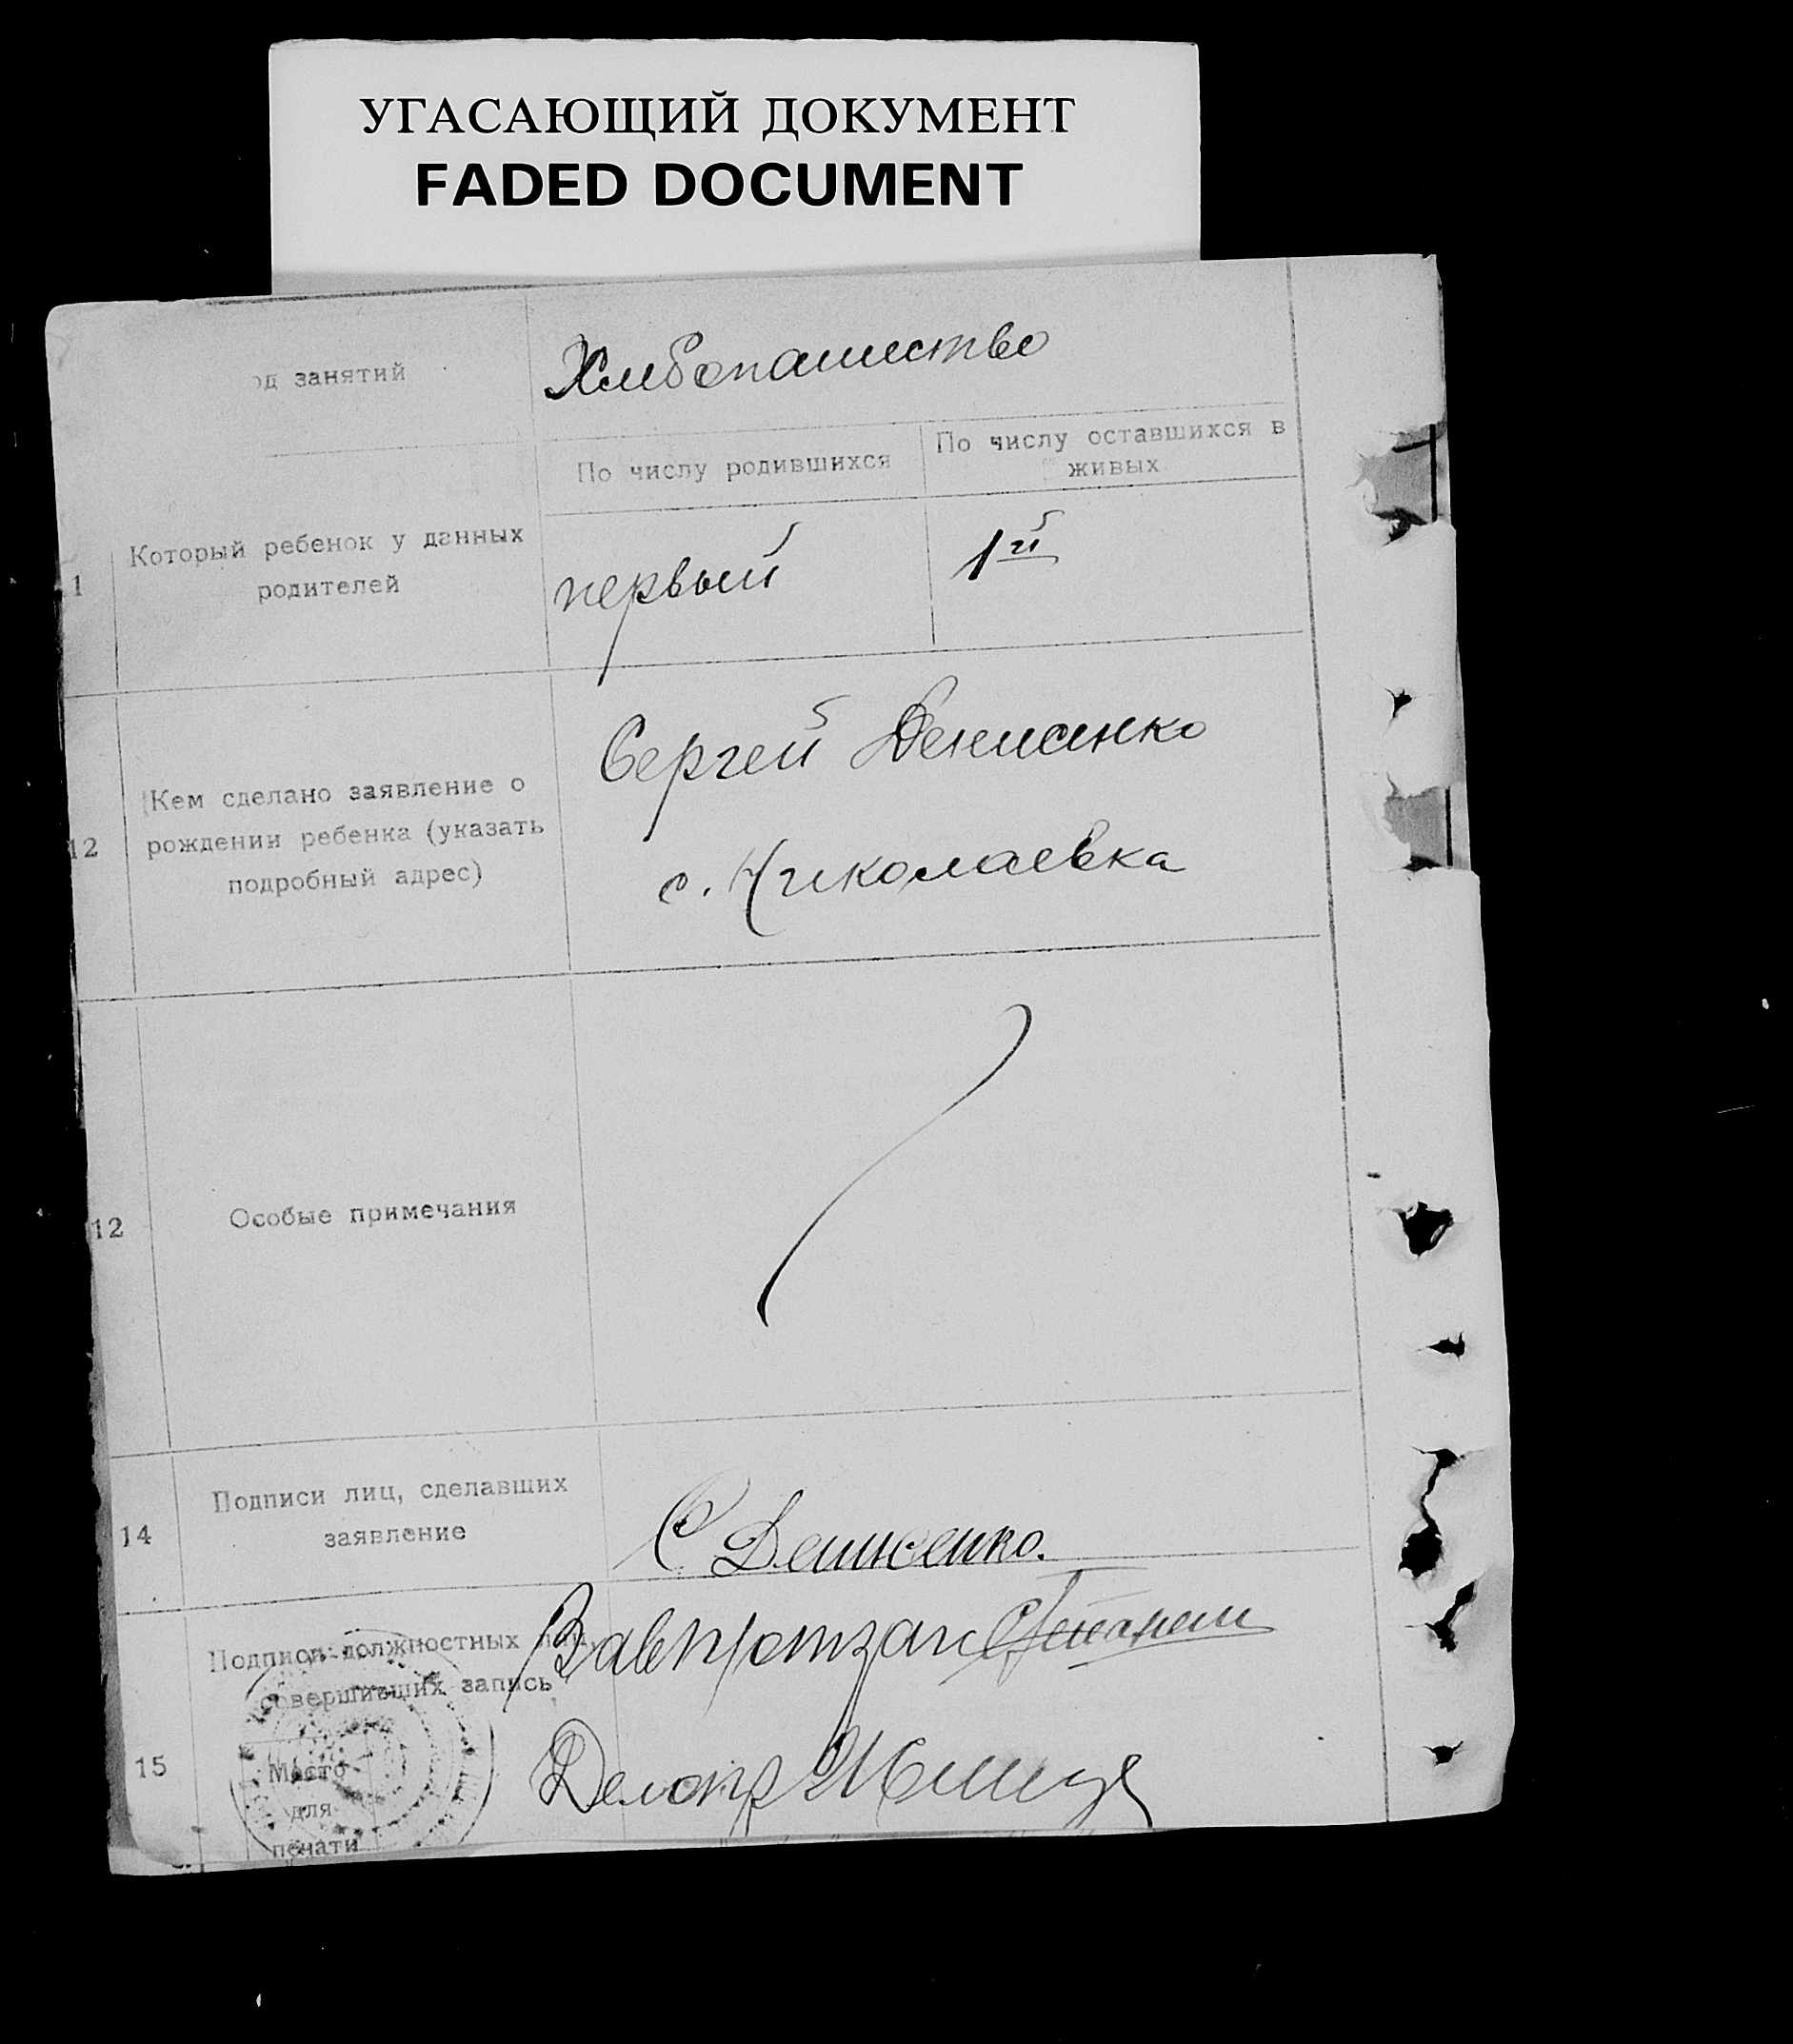 УГАСАЮЩИЙ ДОКУМЕНТ
FADED DOCUMENT
од занятий
Хлебопашество
По числу родившихся
По числу оставшихся в
живых
1
Который ребенок у данных
родителей
первый
1й
12
Кем сделано заявление о
рождении ребенка (указать
подробный адрес)
Сергей Денисенко
с. Николаевка
12
Особые примечания
14
Подписи лиц, сделавших
заявление
С Денисенко.
15
Подписи должностных лиц,
совершивших запись
Место
для
печати
Делопр